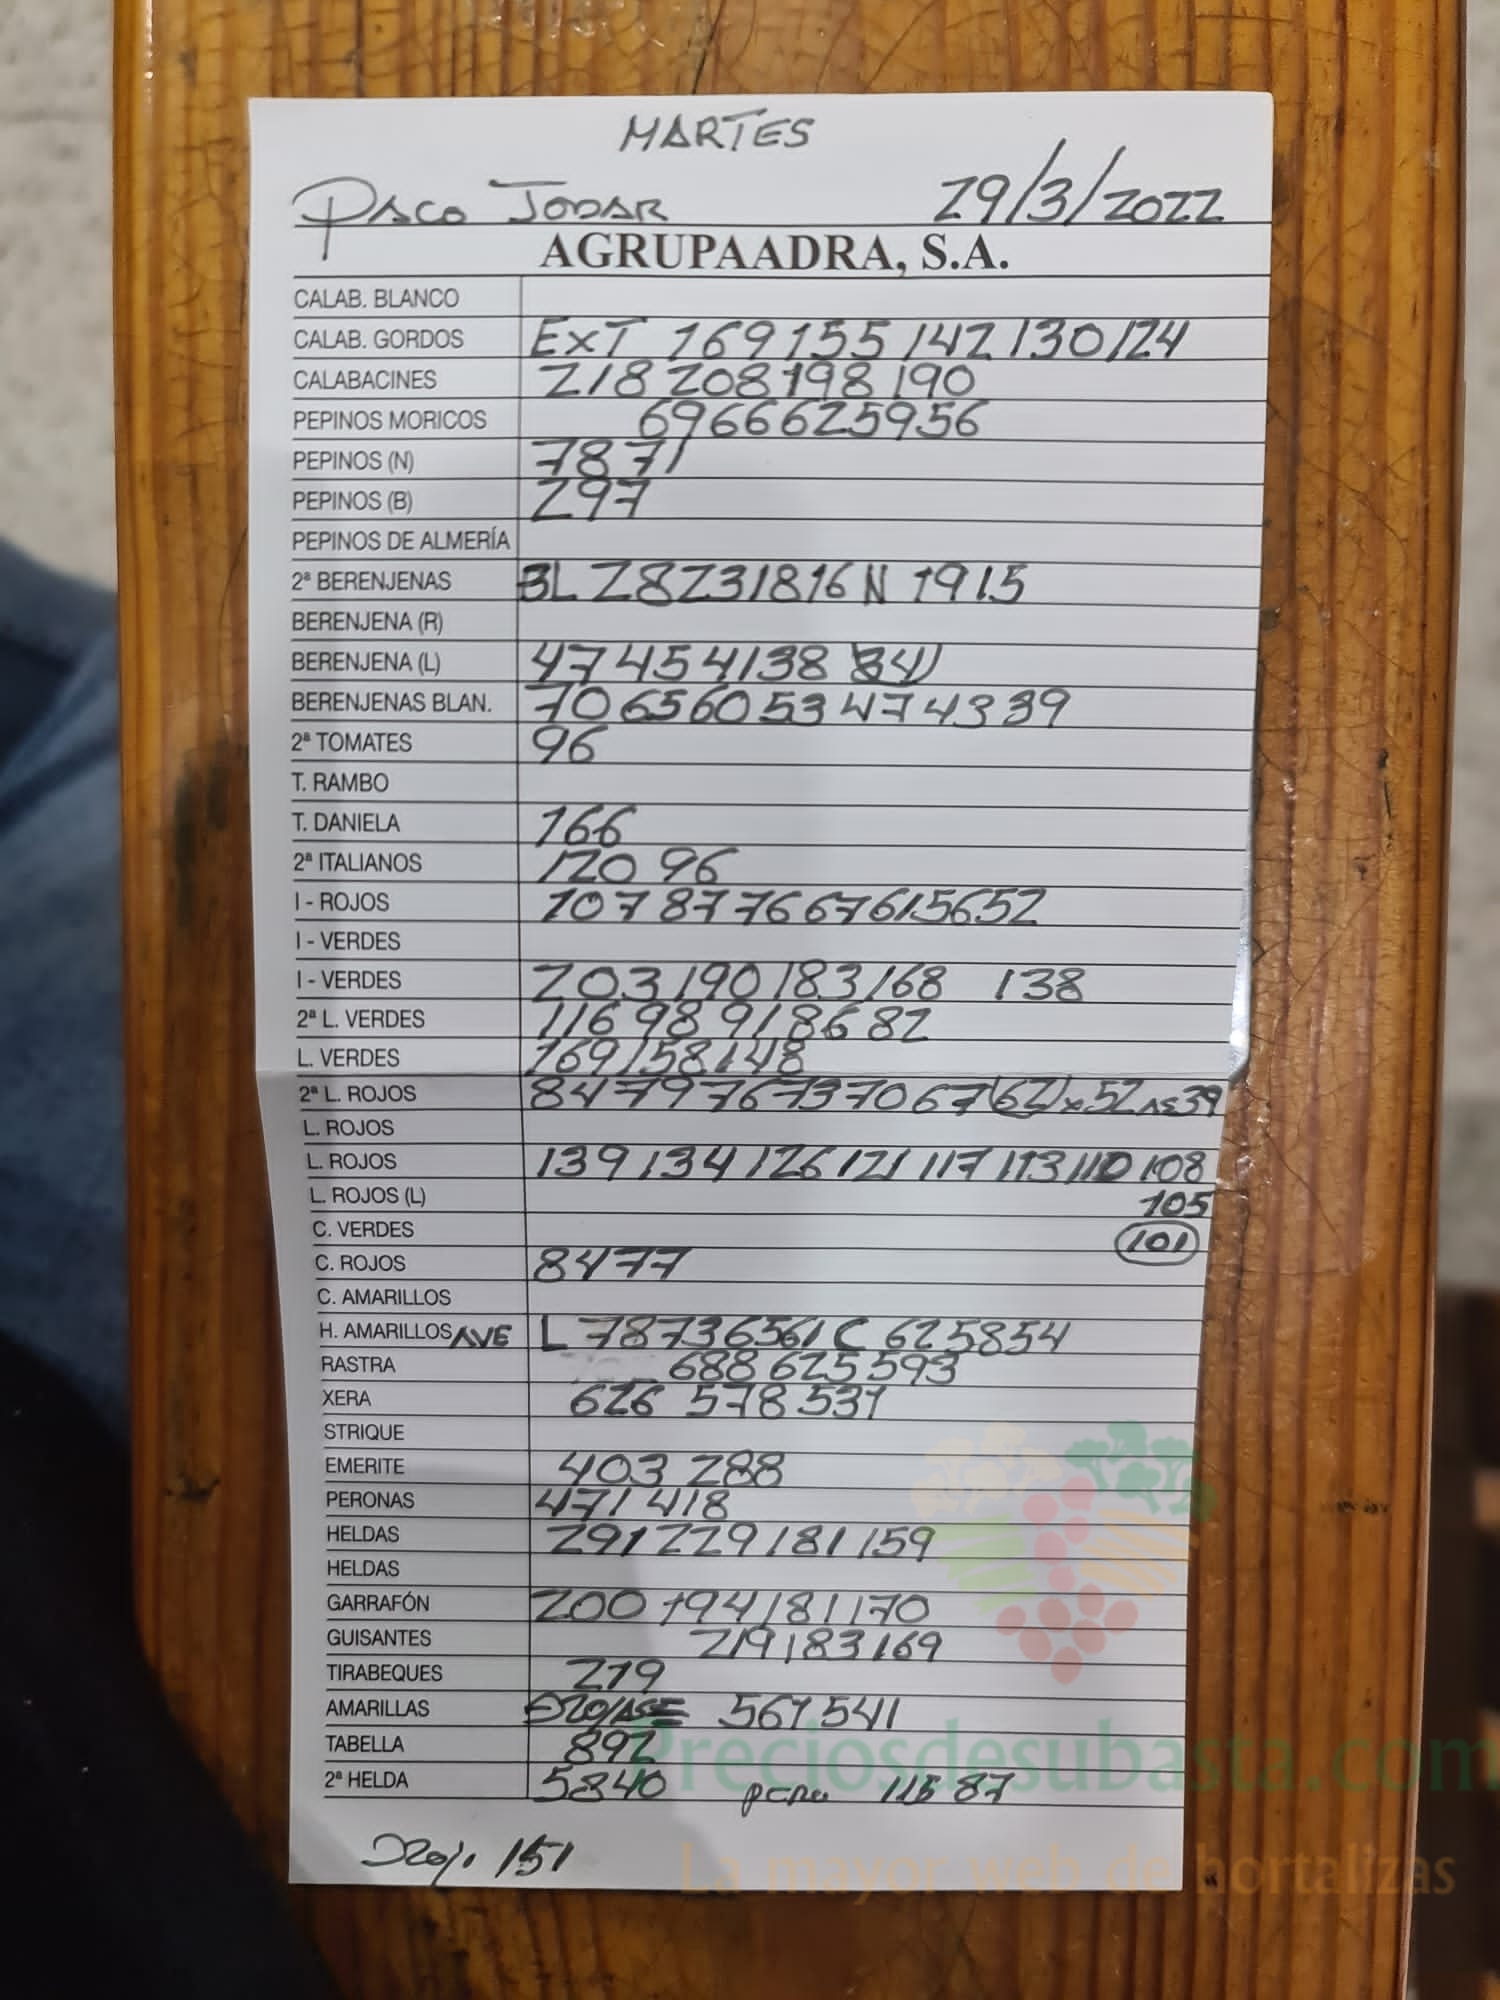 MARTES
PACO JODAR 29/3/2022
AGRUPAADRA, S.A.
CALAB. BLANCO
CALAB. GORDOS EXT 169 155 142 130 124
CALABACINES 218 208 198 190
PEPINOS MORICOS 69 66 62 59 56
PEPINOS (N) 78 71
PEPINOS (B) 297
PEPINOS DE ALMERÍA
2ª BERENJENAS BL 28 23 18 16 N 19 15
BERENJENA (R)
BERENJENA (L) 47 45 41 38 34
BERENJENAS BLAN. 70 65 60 53 47 43 39
2ª TOMATES 96
T. RAMBO
T. DANIELA 166
2ª ITALIANOS 120 96
I - ROJOS 107 87 76 67 61 56 52
I - VERDES
I - VERDES 203 190 183 168 138
2ª L. VERDES 116 98 91 86 82
L. VERDES 169 158 148
2ª L. ROJOS 84 79 76 73 70 67 (62) x 52 AS 39
L. ROJOS
L. ROJOS 139 134 126 121 117 113 110 108
L. ROJOS (L) 105
C. VERDES 101
C. ROJOS 84 77
C. AMARILLOS
H. AMARILLOS AVE L 78 73 65 61 C 62 58 54
RASTRA 688 625 593
XERA 626 578 531
STRIQUE
EMERITE 403 288
PERONAS 471 418
HELDAS 291 229 181 159
HELDAS
GARRAFÓN 200 194 181 170
GUISANTES 219 183 169
TIRABEQUES 219
AMARILLAS 561 541
TABELLA 892
2ª HELDA 58 40 115 87
151
Preciosdesubasta.com
La mayor web de hortalizas